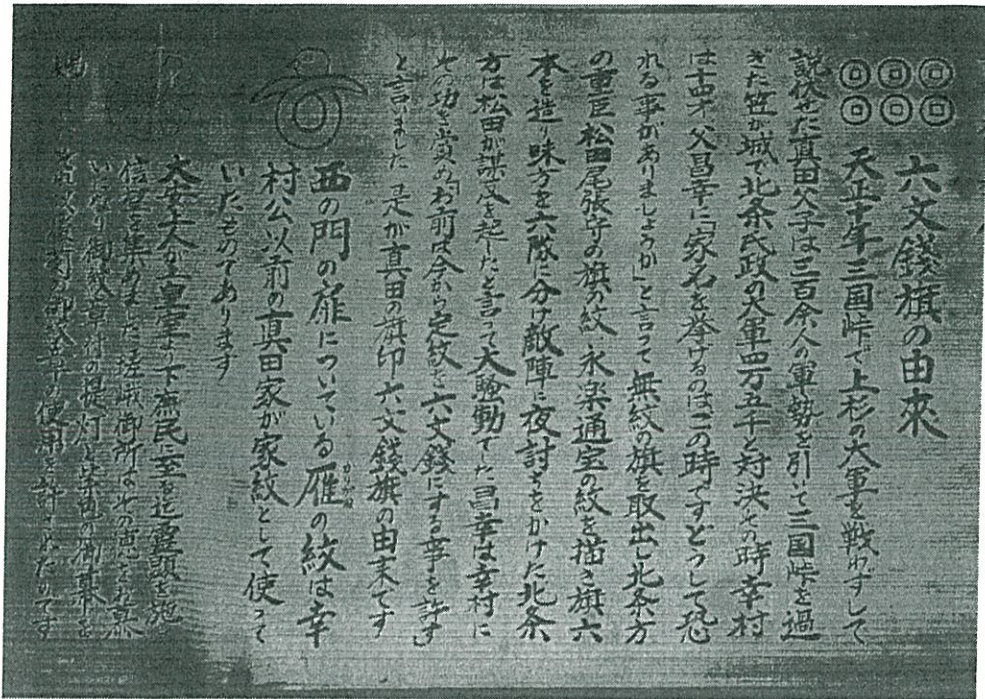 六文錢旗の由來
天正十年三国峠で上杉の大軍を戦わずして
説伏せた真田父子は三百余人の軍勢を引いて三国峠を過
ぎた笠が城で北条氏政の大軍四万五千と対決その時幸村
は十四才、父昌幸に「家名を挙げるのはこの時ですどうして恐
れる事がありましょうか」と言って無紋の旗を取出し北条方
の重臣松田尾張守の旗の紋、永楽通宝の紋を描き旗六
本を造り味方を六隊に分け敵陣に夜討ちをかけた北条
方は松田が謀叛を起したと言って大騒動でした昌幸は幸村に
その功を賞め「お前は今から定紋を六文錢にする事を許す」
と言いました 是が真田の旗印六文錢旗の由来です
西の門の扉についている雁の紋は幸
かりがね
村公以前の真田家が家紋として使って
いたものであります
大安上人が上皇室より下庶民に至る迄霊顕を施
信望を集めました嵯峨御所はその恵をお慕
いになり御紋章付の提灯と紫色の御幕を